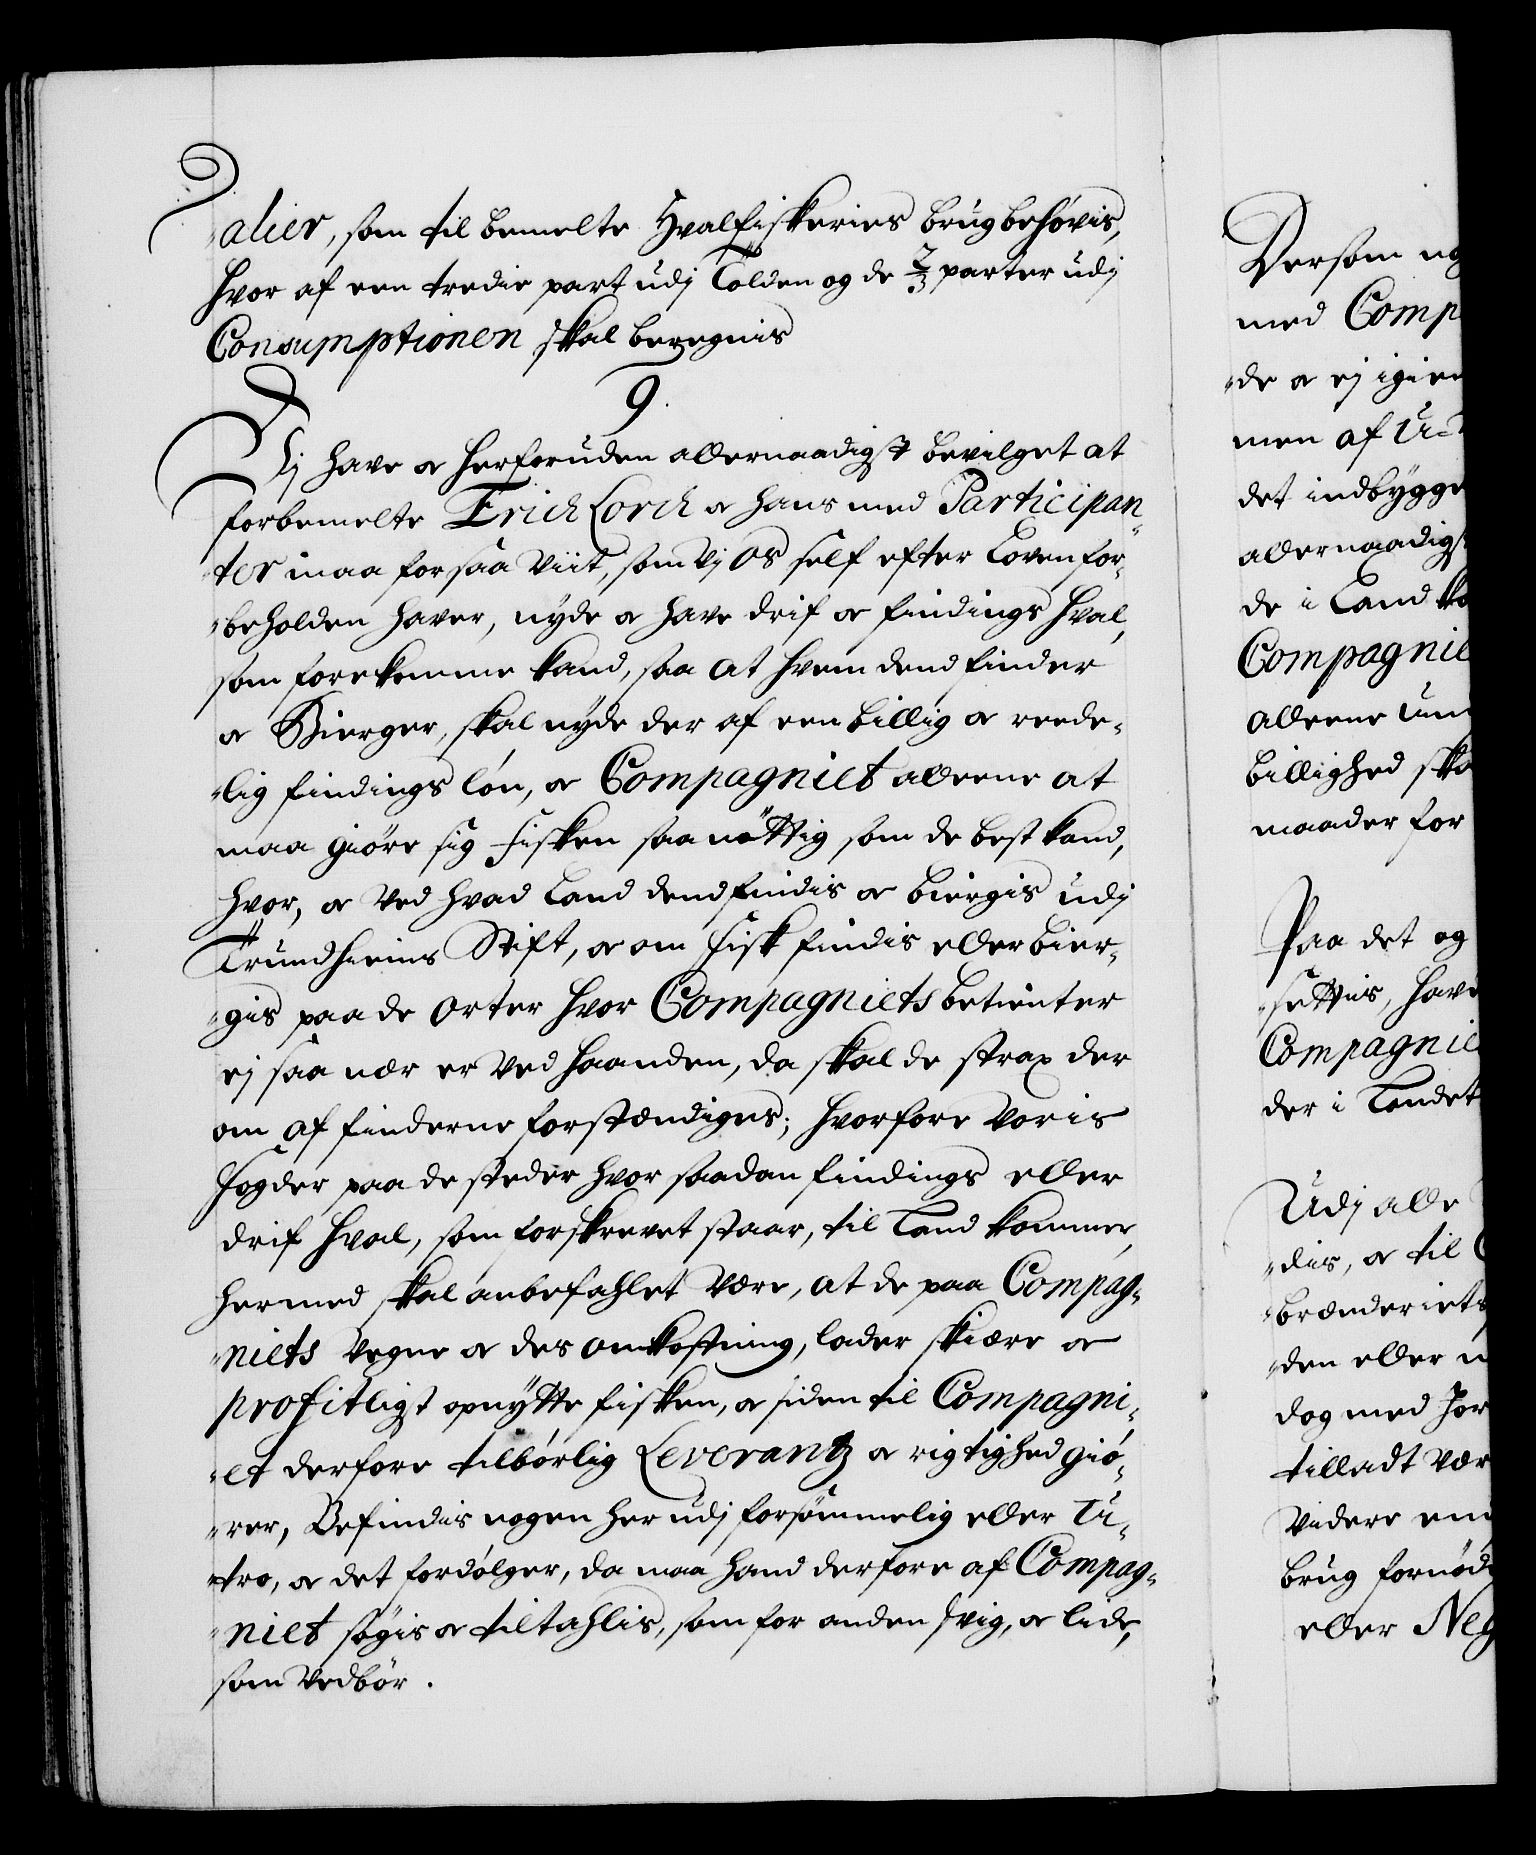 alier, som til bemelte Hvalfiskeries brug behøvis,
hvor af een tredie part udj Tolden og de 2/3 parter udj
Consumptionen skal beregnis
9.
Vj have & herforuden allernaadigst bevilget at
forbemelte Erich Lorch & hans med Participan-
ter maa forsaa viit, som vj os self efter Loven for-
beholden haver, nyde & have drif & findings hval,
som forekomme kand, saa at hvem dend finder
& Bierger, skal nyde der af een billig & reede-
lig findings løn, & Compagniet alleene at
maa giøre sig fisken saa nøttig som de best kand,
hvor, & ved hvad Land dend findis & biergis udj
Trundhiems Stift, & om fisk findis eller bier-
gis paa de orter hvor Compagniets betienter
ej saa nær er ved haanden, da skal de strax der
om af finderne forstændiges; hvorfore voris
fogder paa de steder hvor saadan findings eller
drif hval, som forskrevet staar, til Land kommer,
hermed skal anbefahlet være, at de paa Compag-
niets vegne & des omkostning, lader skiære &
profitligt opnytte fisken, & siden til Compagni-
et derfore tilbørlig Leverantz & rigtighed giø-
rer, Befindis nogen her udj forsømmelig eller U-
tro, & det fordølger, da maa hand derfore af Compag-
niet søgis & tiltahlis, som for anden svig, & lide,
som vedbør.
Dersom
med Comp
de & ej igien
men af
det indbygge
allernaadigst
de i Land
Compagnie
alleene
billighed
maader for
Paa det og
settis, have
Compagnie
der i Landet
Udj alle
dis, & til
brænderiets
den eller
dog med
tilladt vær
videre
brug fornød
eller Neg